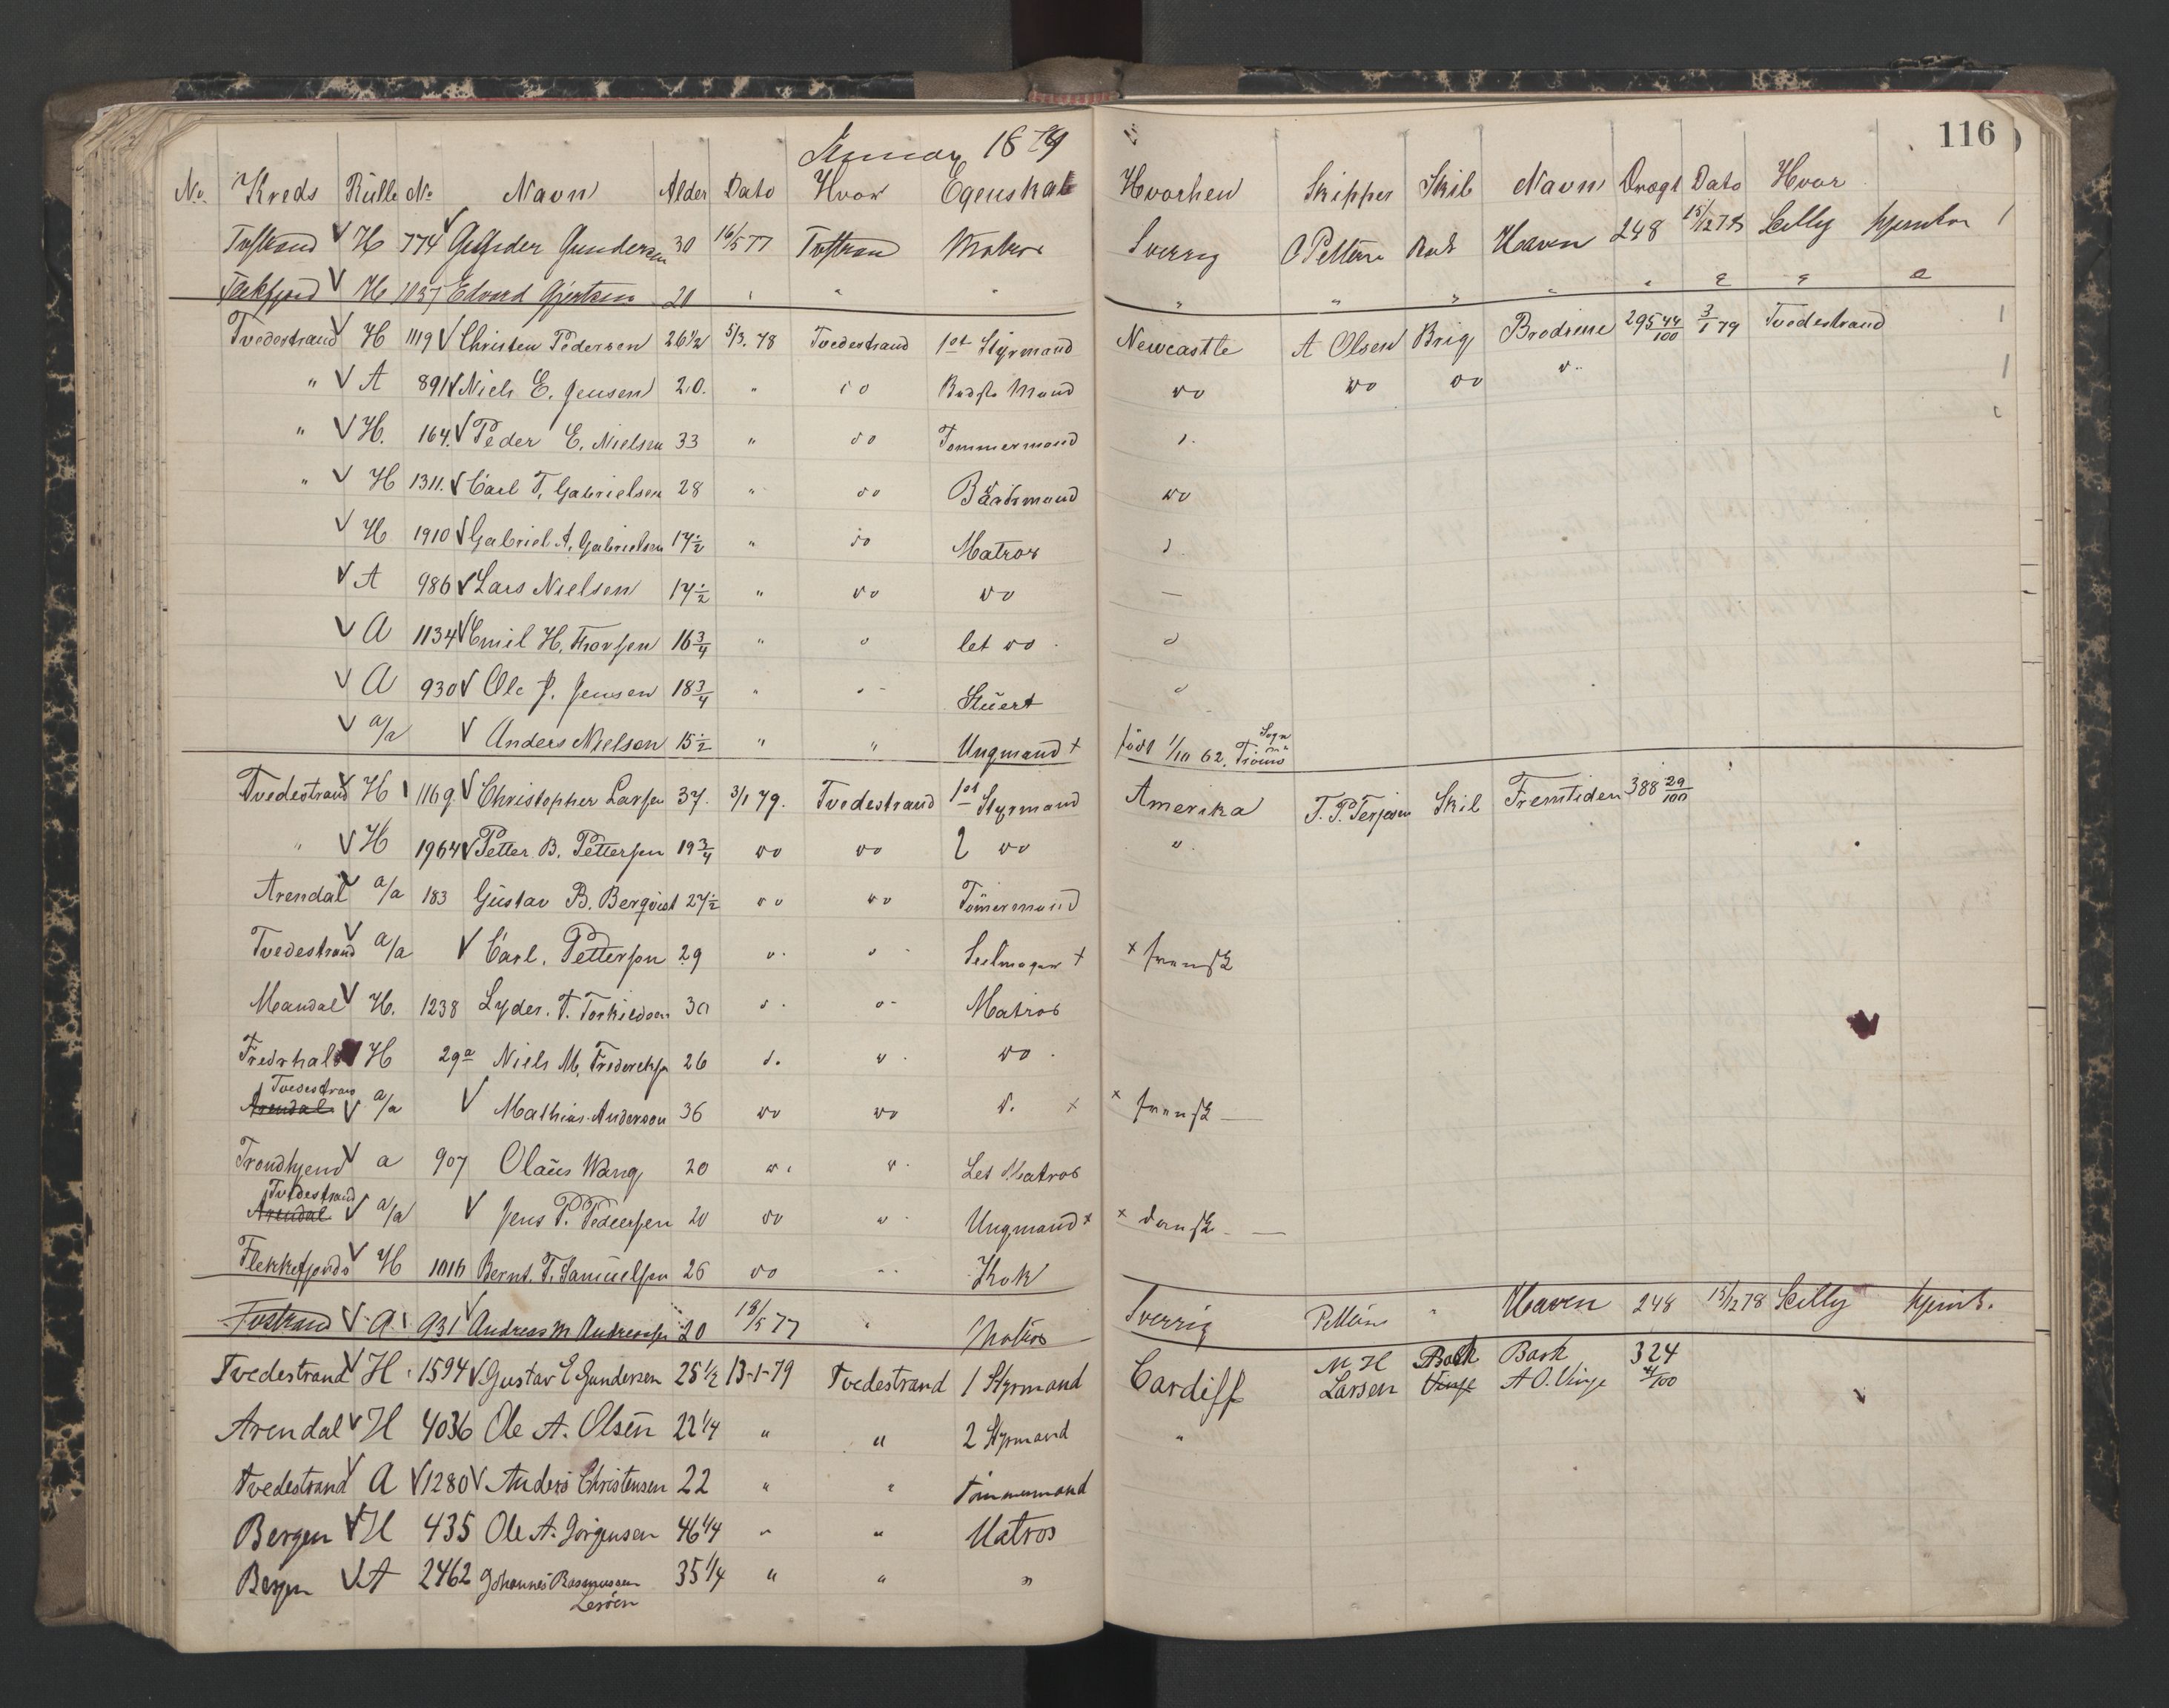 116
Januar 1879
No. Kreds Rulle No Navn Alder Dato Hvor Egenskab Hvorhen Skipper Skib Navn Drægt Dato Hvor
Tvstrand H 774 Gundersen 30 16/5 77 Tvstran Matros Sverrig O Petters Bark Haven 248 15/12 78 Scilly
H 1037 Edvard Gjertsen 20 " " " " " " " " " "
Tvedestrand H 1119 Christen Pedersen 26 1/2 5/3. 78 Tvedestrand 1st Styrmand Newcastle A Olsen Brig Brødrene 295 44/100 3/1 79 Tvedestrand
" A 891 Niels E. Jensen 20. " do Bedste Mand do do do d..
" H. 164. Peder E. Nielsen 33 " do Tømmermand d.
" H 1311. Carl T. Gabrielsen 28 " do Baadsmand do
H 1910 Gabriel A. Gabrielsen 17 1/2 " do Matros d.
A 986 Lars Nielsen 17 1/2 " do do —
A 1134 Emil H. Thorsen 16 3/4 " o let do. d
A 930 Ole J. Jensen 18 3/4 " " Stuert d
a/a Anders Nielsen 15 1/2 " " Ungmand + født 1/10 62. Sogn
Tvedestrand H 1169 Christopher Larsen 37. 3/1 79. Tvedestrand 1st Styrmand Amerika T. P. Terjesen Skib Fremtiden 388 29/100
" H 1964 Petter B. Pettersen 19 3/4 do do 2 do "
Arendal a/a 183 Gustav B. Berqvist 27 1/2 do do Tømermand
Tvedestrand a/a Carl. Petterson 29 d. d Seilmager + × svensk
Mandal H. 1238 Lyder. T. Torkildsen 30 d. d- Matros
Fredrhald H 29a Niels M. Frederiksen 26 d. d. do.
Tvedestrand
Arendal a/a Mathias Anderson 36 do do d. × × svensk —
Trondhjem a 907 Olaus Wang 20 d. d. Let Matros
Tvedestrand
Arendal a/a Jens P. Pedersen 20 do d. Ungmand × × dansk —
Flekkefjords H 1016 Bernt. T. Samuelsen 26 do " Kok
Tvstrand A. 931 Andreas M Andreasen 20 18/5 77 " Matros Sverrig Petters " Haven 248 15/12 78 Scilly
Tvedestrand H 1594 Gustav E Gundersen 25 1/2 13-1-79 Tvedestrand 1 Styrmand Cardiff M H Larsen Bark Vinje Bark A O. Vinje 324 4/100
Arendal H 4036 Ole A. Olsen 22 1/4 " " 2 Styrmand "
Tvedestrand A 1280 Anders Christensen 22 " " Tømmermand
Bergen H 435 Ole A. Jørgensen 46 1/4 " " Matros
Bergen A 2462 Johannes Rasmussen 35 1/4 " " "
Lerøen